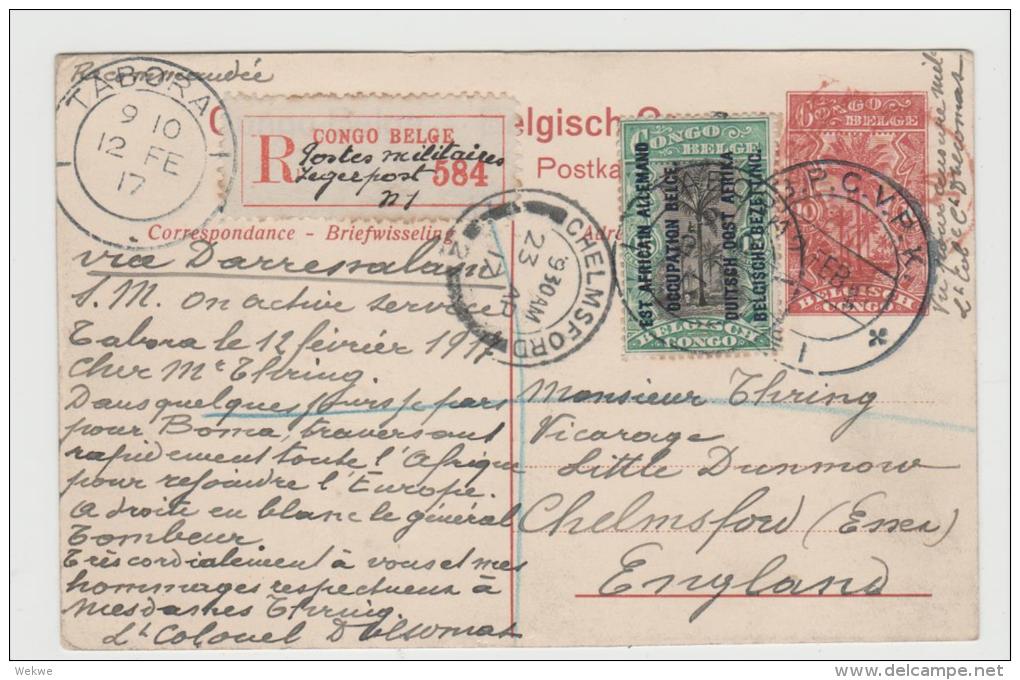 Recommandée
TABORA
9 10
12 FE
17
CONGO BELGE
R
Postes militaires
Legerpost
584
N1
elgisch
Postka
Correspondance - Briefwisseling
Adr
via Darressalam
S.M. On active service
Tabora le 12 février 1917
Cher Mr Thring
Dans quelques jours je pars
pour Boma, traversant
rapidement toute l'Afrique
pour rejoindre l'Europe.
A droite en blanc le général
Tombeur
Très cordialement à vous et mes
hommages respectueux à
Mesdames Thring.
Lt Colonel
CHELMSFORD
9 30 AM
23 AP
17
CONGO
BELGE
EST AFRICAIN ALLEMAND
OCCUPATION BELGE.
DUITSCH OOST AFRIKA
BELGISCHE BEZETTING.
BELGISCH
CONGO
CONGO
BELGE
10
BELGISCH
CONGO
B.P.C.V.P.K.
FEB
1
Monsieur Thring
Vicarage
Little Dunmow
Chelmsford (Essex)
England
Wekwe
www.delcampe.net